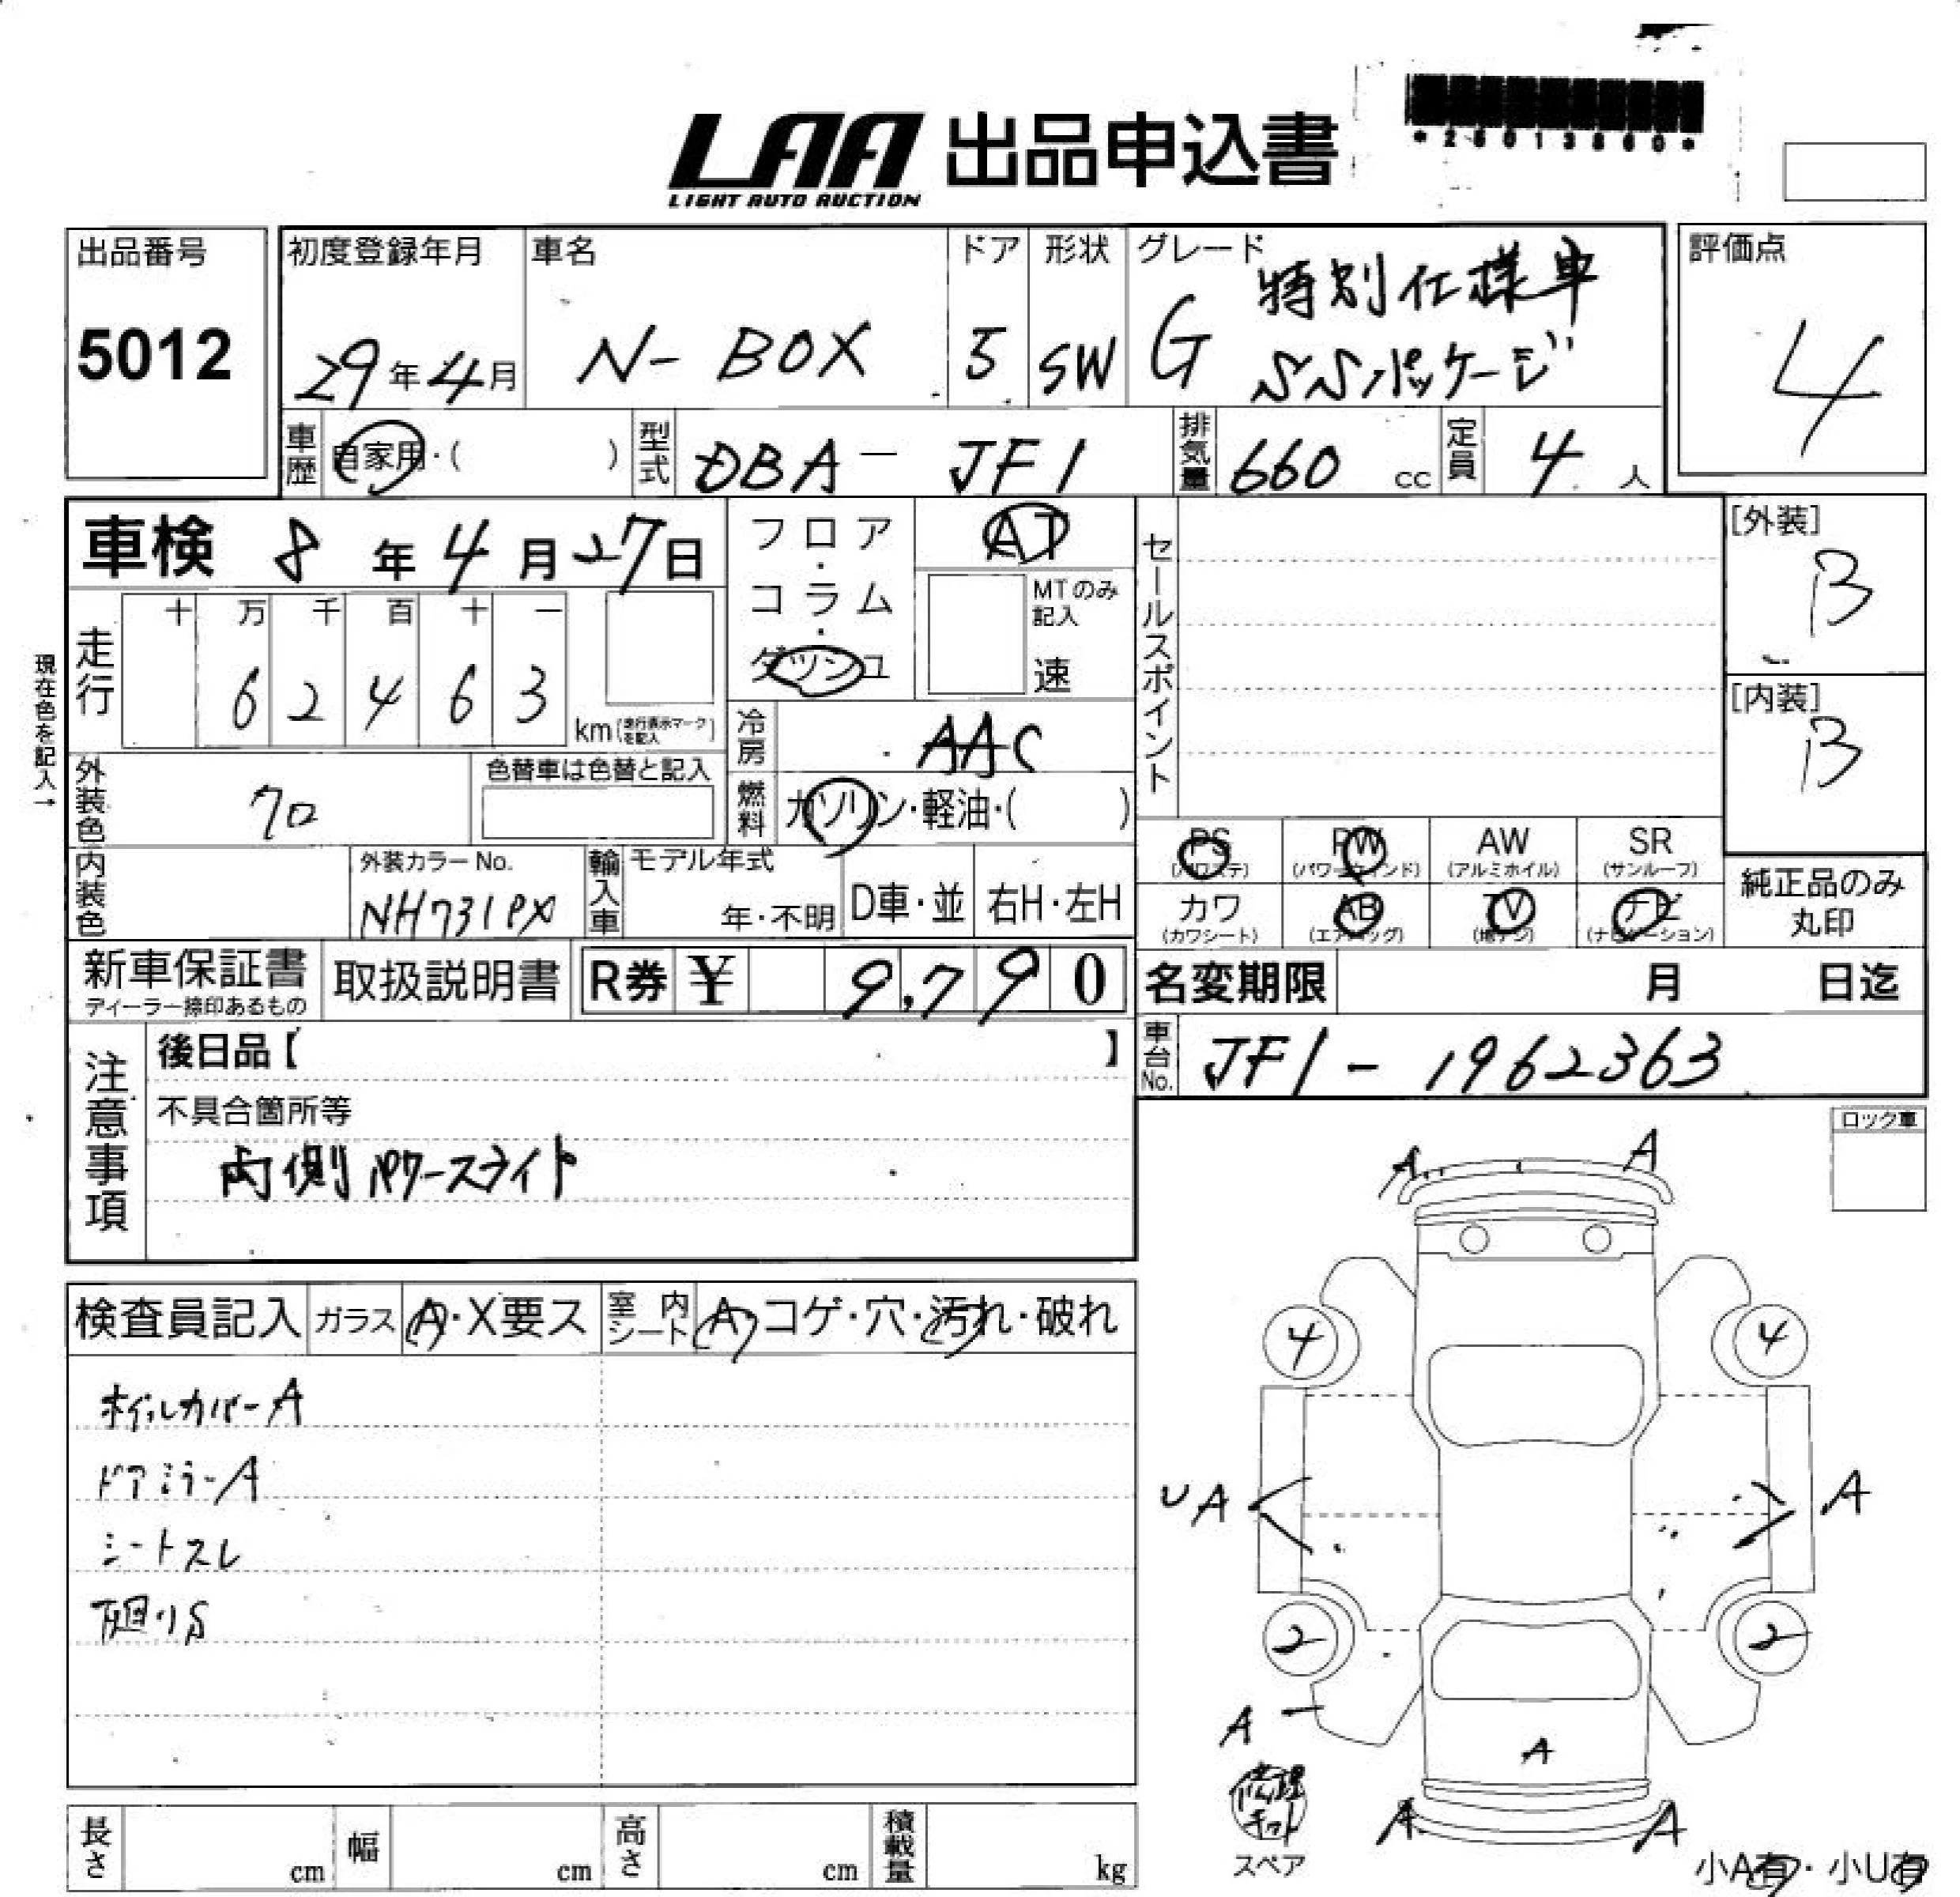 LAA 出品申込書
LIGHT AUTO AUCTION
出品番号
5012
初度登録年月
29年4月
車名
N-BOX
ドア
5
形状
SW
グレード
G 特別仕様車
SSパッケージ
評価点
4
車歴
自家用・( )
型式
DBA-JF1
排気量
660 cc
定員
4 人
車検 8年4月27日
フロア・コラム・ダッシュ
AT
MTのみ記入
速
セールスポイント
[外装]
B
[内装]
B
現在色を記入→
走行
十 万 千 百 十 一
6 2 4 6 3
km(走行表示マークを記入)
冷房
AAC
外装色
クロ
色替車は色替と記入
燃料
ガソリン・軽油・( )
内装色
外装カラーNo.
NH731PX
輸入車
モデル年式
年・不明
D車・並
右H・左H
PS
(パワステ)
PW
(パワーウィンド)
AW
(アルミホイル)
SR
(サンルーフ)
カワ
(カワシート)
AB
(エアバッグ)
TV
(地デジ)
ナビ
(ナビゲーション)
純正品のみ
丸印
新車保証書
ディーラー捺印あるもの
取扱説明書
R券 ¥ 9,790
名変期限 月 日迄
注意事項
後日品【 】
不具合箇所等
両側パワースライド
車台No.
JF1-1962363
ロック車
検査員記入
ガラス
A・X要ス
室内シート
A・コゲ・穴・汚れ・破れ
ホイルカバーA
ドアミラーA
シートスレ
下廻りS
A
A
4
4
UA
A
2
2
A
A
修理キット
スペア
A
A
小A有・小U有
長さ
cm
幅
cm
高さ
cm
積載量
kg